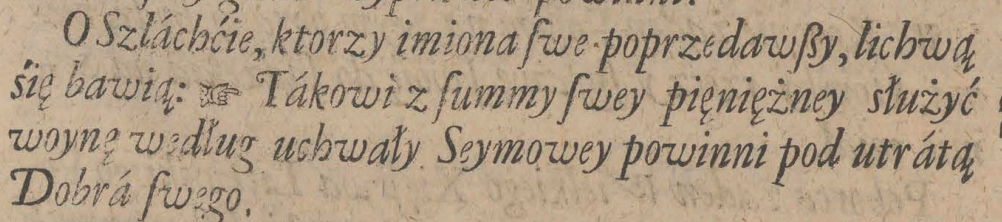 O Szláchćie, ktorzy imiona ſwe poprzedawſzy, lichwą
śię bawią: ☞ Tákowi z ſummy ſwey pięniężney służyć
woynę według uchwały Seymowey powinni pod utrátą
Dobrá ſwego.